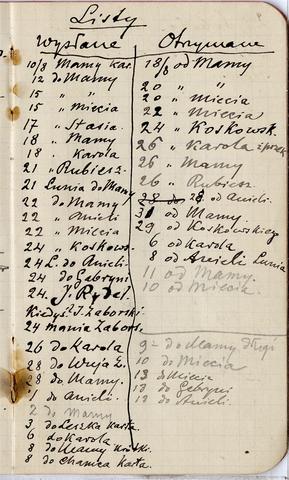 Listy
Wysłane
10/8 Mamy kar.
12 do Mamy
15 " "
15 " Miecia
17 " Stasia
18 " Mamy
18 " Karola
21 " Rubiesz.
21 Lunia do Mamy
22 do Mamy
22 " Anieli
22 " Miecia
24 " Koskows.
24 L. do Anieli.
24 do Gebryni
24. J. Rydel.
Kiedyś J. Zaborski
24 Mania Zabors.
26 do Karola
28 do Wuja Z.
28 do Mamy.
1 do Anieli.
2 do Mamy
3 do Leszka Karta
6 do Karola
8 do Mamy krótki.
8 do Chamca Karta.
Otrzymane
18/8 od Mamy
20 " "
20 " Miecia
22 " Miecia
24 " Koskowsk.
26 " Karola
26 " Mamy
26 " Rubiesz.
28 od Anieli.
31 od Mamy.
29 od Koskowskiego
6 od Karola
8 od Anieli Lunia
11 od Mamy.
10 od Miecia.
9 do Mamy długi
10 do Miecia
13 do Miecia
13 do Gebryni
13 do Anieli.